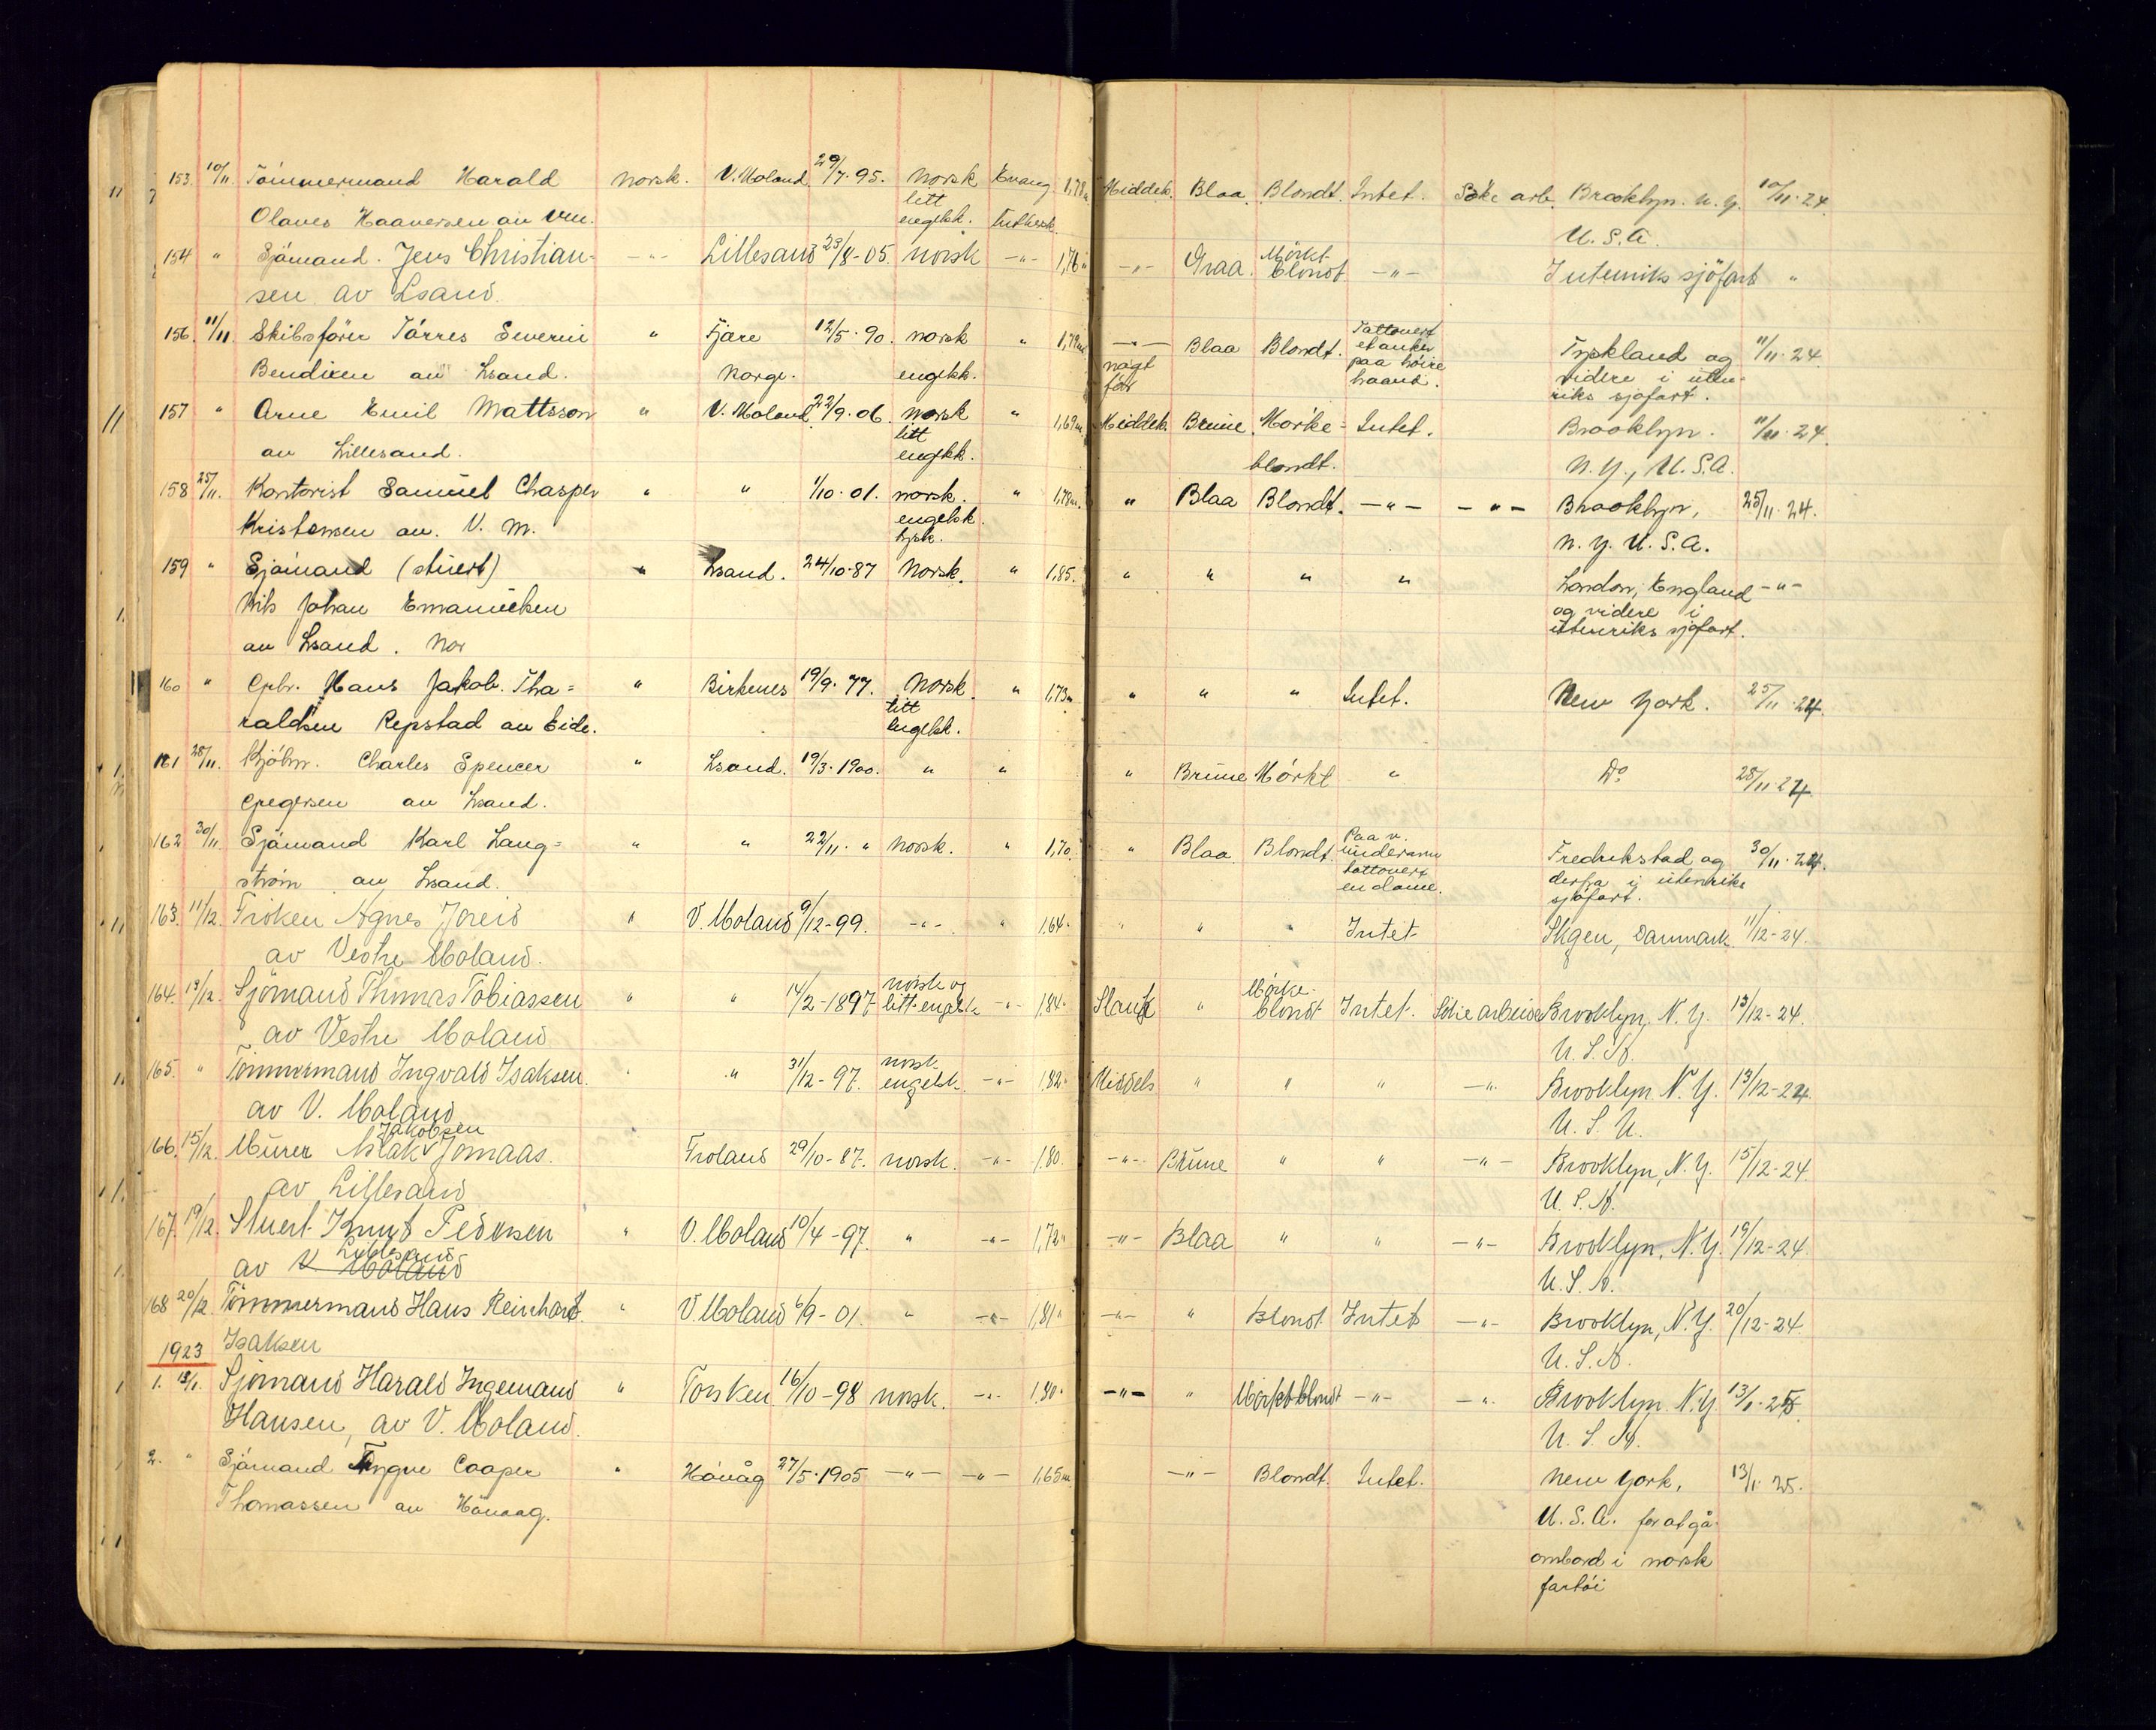 153. 10/11. Tømmermand Harald norsk. V. Moland 29/7.95. norsk Evang. 1,78m Middels. Blaa. Blondt. Intet. Søke arb. Brooklyn. N.Y. 10/11.24.
litt
Olaves Haaversen av engelsk. luthersk. U.S.A.
154 " Sjømand. Jens Christian- -"- Lillesand 23/8-05. norsk -"- 1,76" -"- Graa. Mørkt- blondt. -"- Utenriks sjøfart "
sen av Lsand.
156. 11/11. Skibsfører Tørres Severin " Fjære 12/5.90. norsk " 1,79m -"- Blaa Blondt. Tattovert et anker paa høire haand. Tyskland og 11/11.24.
Bendixen av Lsand. Norge. engelsk. noget før videre i uten-
riks sjøfart.
157 " Arne Emil Mattsson " V. Moland 22/9.06. norsk " 1,69m. Middels Brune. Mørke- Intet. Brooklyn. 11/11.24.
litt
av Lillesand. engelsk. blondt. N.Y., U.S.A.
158 25/11. Kontorist Samuel Chasper " " 1/10.01. norsk. " 1,78m. " Blaa Blondt. -"- -"- Brooklyn, 25/11.24.
Kristensen av. V. M. engelsk. N.Y. U.S.A.
tysk.
159 " Sjømand (stuert) " Lsand. 24/10.87 Norsk. " 1,85. " " " " London, England -"-
Nils Johan Emanuelsen og videre i
av Lsand. Nor utenriks sjøfart.
160 " Gbr. Hans Jakob. Tha= " Birkenes 19/9.77. Norsk. " 1,73m " " " Intet. New York. 25/11.24.
litt
raldsen Repstad av Eide. engelsk.
161 28/11. Kjøbm. Charles Spencer " Lsand. 19/3.1900. " " " Brune Mørkt " Do 28/11.24
Gregersen av Lsand.
162 30/11. Sjømand Karl Lang= " " 22/11. " Norsk. " 1,70. " Blaa. Blondt. Paa v. underarm tattovert en dame. Fredrikstad og 30/11.24.
strøm av Lsand. derfra i utenriks
sjøfart.
163. 11/12. Frøken Agnes Joreid " V. Moland 9/12-99. -"- " 1,64. " " " Intet Skgen, Danmark 11/12-24.
av Vestre Moland.
164. 13/12. Sjømand Thomas Tobiassen " " 14/2-1897 norsk og litt engelsk -"- 1,84. Slank " Mørke- blondt Intet. Søke arbeide Brooklyn, N.Y. 13/12-24.
av Vestre Moland U.S.A.
165. " Tømmermand Ingvald Isaksen. " " 31/12-97. norsk engelsk -"- 1,82" Middels " " " -"- Brooklyn N.Y. 13/12-24.
av V. Moland U.S.A.
Jakobsen
166. 15/12. Murer Aslak v Jomaas. Froland 29/10-87. norsk. -"- 1,80. -"- Brune " " -"- Brooklyn, N.Y. 15/12-24.
av Lillesand U.S.A.
167. 19/12. Stuert Knut Pedersen " V. Moland 10/4-97. " -"- 1,72" -"- Blaa " " -"- Brooklyn, N.Y. 19/12-24.
Lillesand
av V Moland U.S.A.
168 20/12. Tømmermand Hans Reinhard " V. Moland 6/9-01. " -"- 1,81" -"- " Blondt Intet -"- Brooklyn, N.Y. 20/12-24.
Isaksen U.S.A.
1923
1. 13/1. Sjømand Harald Ingemand " Torsken 16/10-98 norsk. -"- 1,80. -"- " Mørkt blondt -"- -"- Brooklyn N.Y. 13/1-25.
Hansen, av V. Moland. U.S.A.
2. " Sjømand Trygve Cooper " Høvåg 27/5.1905 -"- -"- 1,65m -"- Blondt. Intet. New York, 13/1.25.
Thomassen av Høvaag. U.S.A. for at gå
ombord i norsk
fartøi